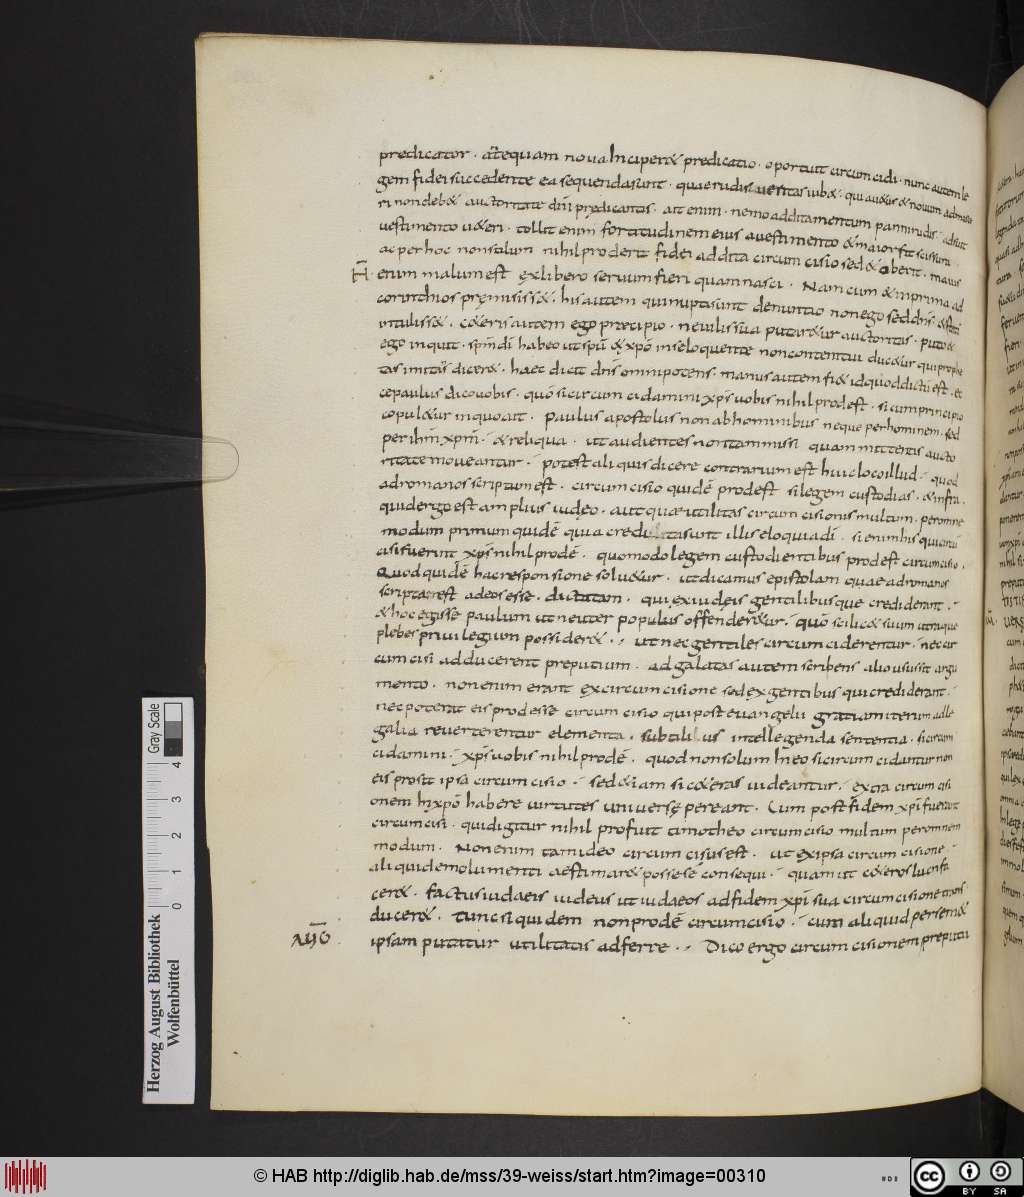 predicator · antequam noua Inciperet predicatio · oportuit circumcidi · nunc autem le
gem fidei succedente ea sequenda sunt · quae rudis ueritas iubet ·
ri non debet auctoritate dni predicantis · ait enim · nemo additamentum panni rudis · adsuit
uestimento ueteri · tollit enim fortitudinem eius a uestimento & maior fit scissura ·
ac per hoc non solum nihil proderit fidei addita circumcisio sed & oberit · maius
H enim malum est ex libero seruum fieri quam nasci · Nam cum & in prima ad
corinthios premisisset · his autem qui nupti sunt denuntio non ego sed dns ·
intulisset · ceteris autem ego precipio · ne uilis sua putaretur auctoritas · puto &
ego inquit · spm di habeo ut spu & xpo in se loquente non contentui ducetur qui prophe
tas imitatus diceret · haec dicit dns omnipotens · manus autem fiet id quod dictum est · ec
ce paulus dico uobis · quo si circumcidamini xps uobis nihil prodest · si cum principio
copuletur in quo ait · Paulus apostolus non ab hominibus neque per hominem · sed
per ihm xpm · & reliqua · ut audientes non tam missi quam mittentis aucto
ritate moueantur · potest aliquis dicere contrarium est huic loco illud · quod
ad romanos scriptum est · circumcisio quidem prodest si legem custodias · & infra ·
quid ergo est amplius iudeo · aut quae utilitas circumcisionis multum · per omne
modum primum quidem quia credita sunt illis eloquia di · si enim his qui circum
cisi fuerint xps nihil prode · quomodo legem custodientibus prodest circumcisio ·
Quod quidem hac responsione soluetur · ut dicamus epistolam quae ad romanos
scripta est ad eos esse · dictatam · qui ex iudeis gentilibusque crediderant ·
& hoc egisse paulum ut neuter populus offenderetur · quo scilicet suum utraque
plebes priuilegium possideret · ut nec gentiles circumciderentur · nec cir
cumcisi adducerent preputium · ad galatas autem scribens alio usus sit argu
mento · non enim erant ex circumcisione sed ex gentibus qui crediderant ·
nec poterat eis prodesse circumcisio qui post euangelii gratiam iterum ad le
galia reuerterentur elementa · subtilius intellegenda sententia · si circum
cidamini · xps uobis nihil prode · quod non solum In eo si circumcidantur non
eis prosit ipsa circumcisio · sed etiam si ceteras uideantur · extra circumcisi
onem In xpo habere uirtutes uniuerse pereant · Cum post fidem xpi fuerint
circumcisi · quid igitur nihil profuit timotheo circumcisio multum per omnem
modum · Non enim tam ideo circumcisus est · ut ex ipsa circumcisione ·
aliquid emolumenti aestimaret posse se consequi · quam ut ceteros lucrifa
ceret · factus iudaeis iudeus ut iudaeos ad fidem xpi sua circumcisione trans
duceret · tunc siquidem non prode circumcisio · cum aliquid per semet
ipsam putatur utilitatis adferre · Dico ergo circumcisionem preputii
Gray Scale
0 1 2 3 4
Herzog August Bibliothek
Wolfenbüttel
© HAB http://diglib.hab.de/mss/39-weiss/start.htm?image=00310
cc
BY SA